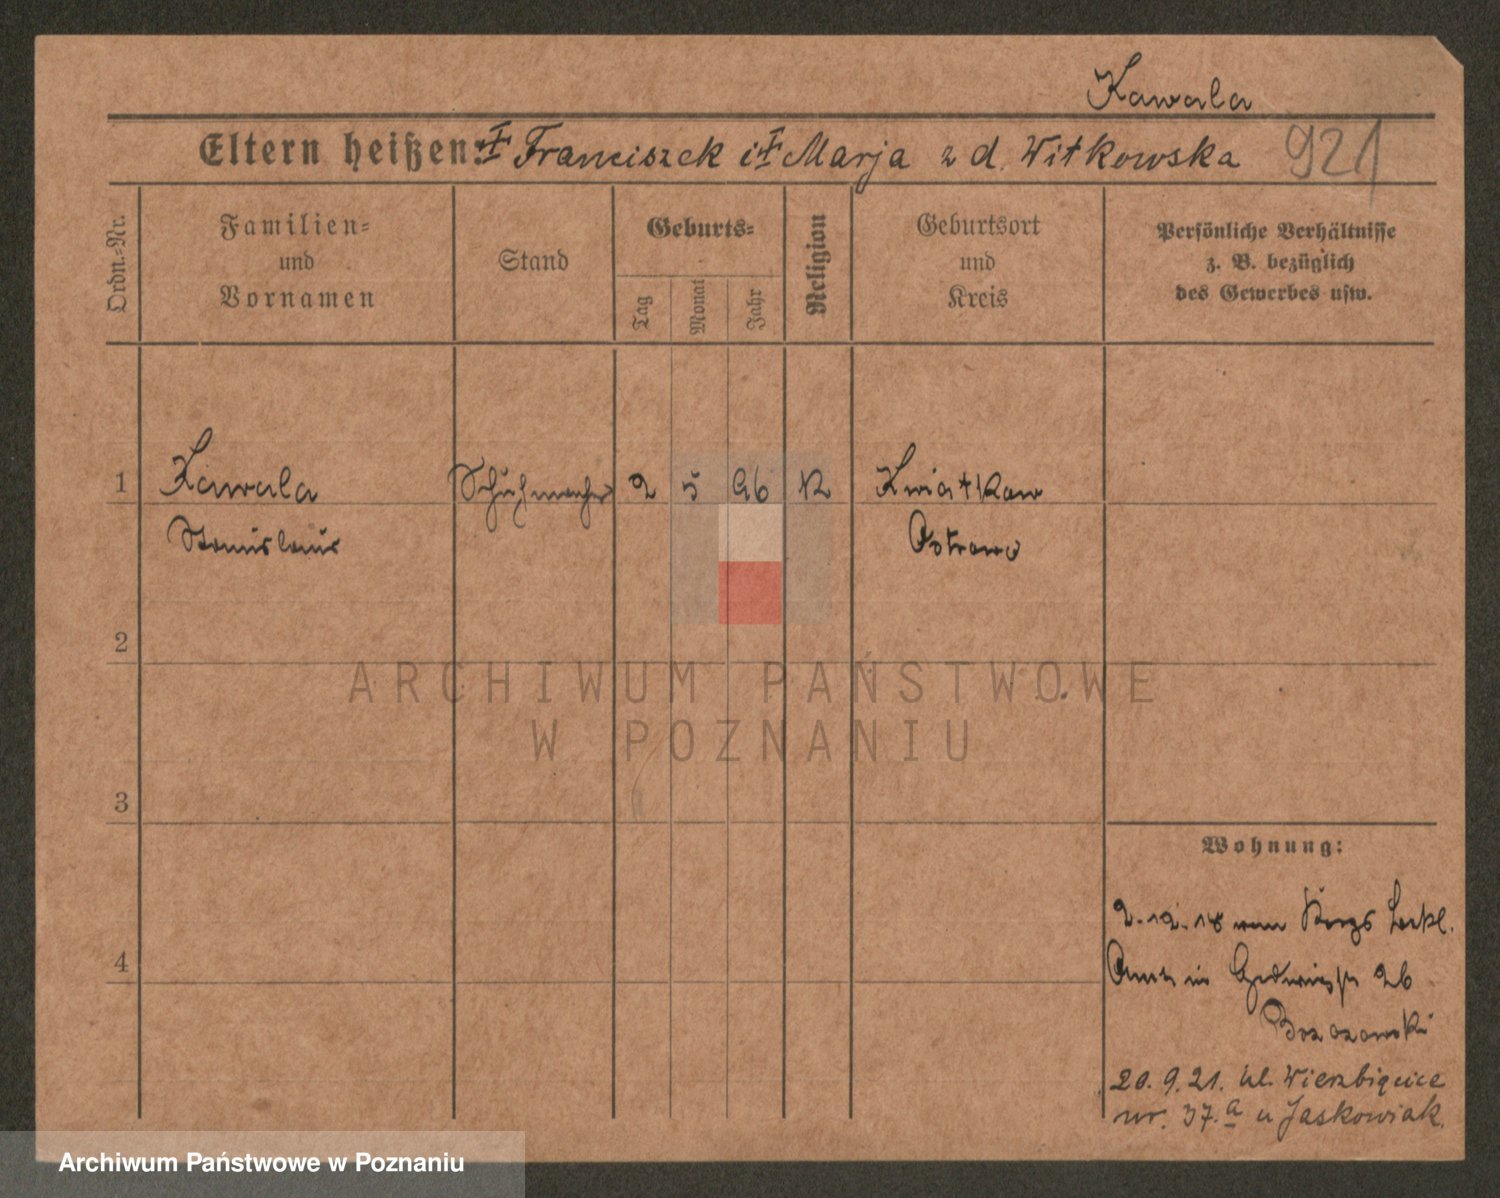 Kawala
Eltern heißen: ‡ Franciszek i ‡ Marja z d. Witkowska 921
Ordn.-Nr.
Familien- und Vornamen
Stand
Geburts-
Tag
Monat
Jahr
Religion
Geburtsort und Kreis
Persönliche Verhältnisse
z. B. bezüglich
des Gewerbes usw.
1 Kawala Schuhmacher 2 5 96 K Kwiatkow
Stanislaus Ostrowo
2
ARCHIWUM PAŃSTWOWE
W POZNANIU
3
Wohnung:
2.12.18 vom Bekl.
4 Amt in 26
20.9.21. ul. Wierzbięcice
nr. 37.a u Jaskowiak.
Archiwum Państwowe w Poznaniu